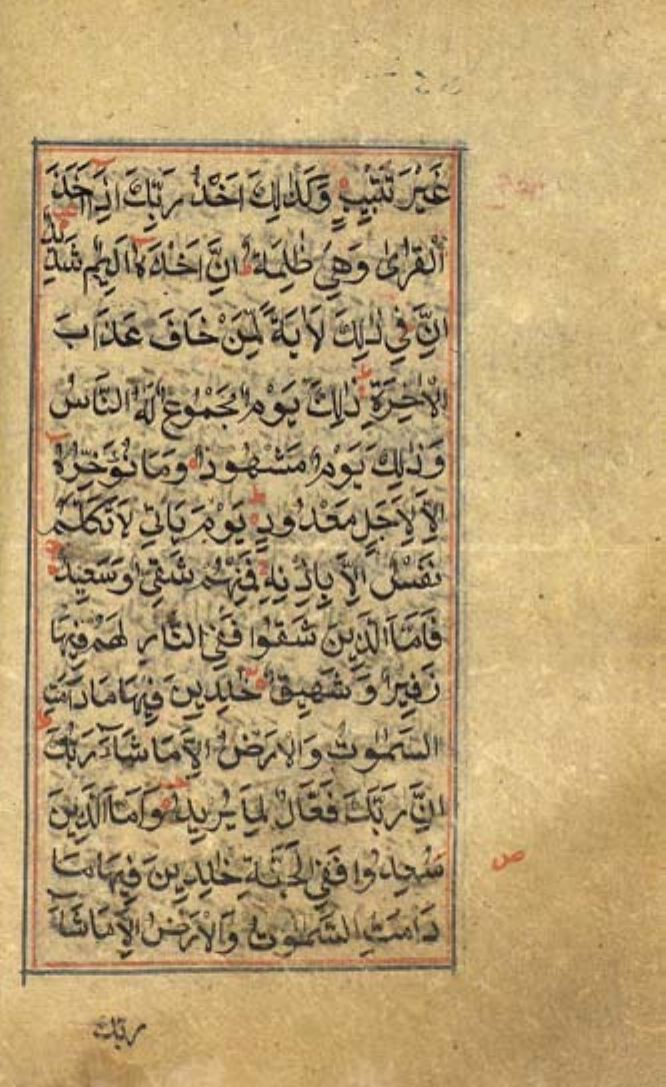 غَيْرَ تَتْبِيْبٍ وَكَذٰلِكَ اَخْذُ رَبِّكَ اِذَآ اَخَذَ
الْقُرٰى وَهِىَ ظٰلِمَةٌ اِنَّ اَخْذَهٗ اَلِيْمٌ شَدِيْدٌ
اِنَّ فِيْ ذٰلِكَ لَاٰيَةً لِّمَنْ خَافَ عَذَابَ
الْاٰخِرَةِ ذٰلِكَ يَوْمٌ مَّجْمُوْعٌ لَّهُ النَّاسُ
وَذٰلِكَ يَوْمٌ مَّشْهُوْدٌ وَمَا نُؤَخِّرُهٗٓ
اِلَّا لِاَجَلٍ مَّعْدُوْدٍ يَوْمَ يَاْتِ لَا تَكَلَّمُ
نَفْسٌ اِلَّا بِاِذْنِهٖ فَمِنْهُمْ شَقِىٌّ وَّسَعِيْدٌ
فَاَمَّا الَّذِيْنَ شَقُوْا فَفِى النَّارِ لَهُمْ فِيْهَا
زَفِيْرٌ وَّشَهِيْقٌ خٰلِدِيْنَ فِيْهَا مَا دَامَتِ
السَّمٰوٰتُ وَالْاَرْضُ اِلَّا مَا شَآءَ رَبُّكَ
اِنَّ رَبَّكَ فَعَّالٌ لِّمَا يُرِيْدُ وَاَمَّا الَّذِيْنَ
سُعِدُوْا فَفِى الْجَنَّةِ خٰلِدِيْنَ فِيْهَا مَا
دَامَتِ السَّمٰوٰتُ وَالْاَرْضُ اِلَّا مَا شَآءَ
ص
ربك